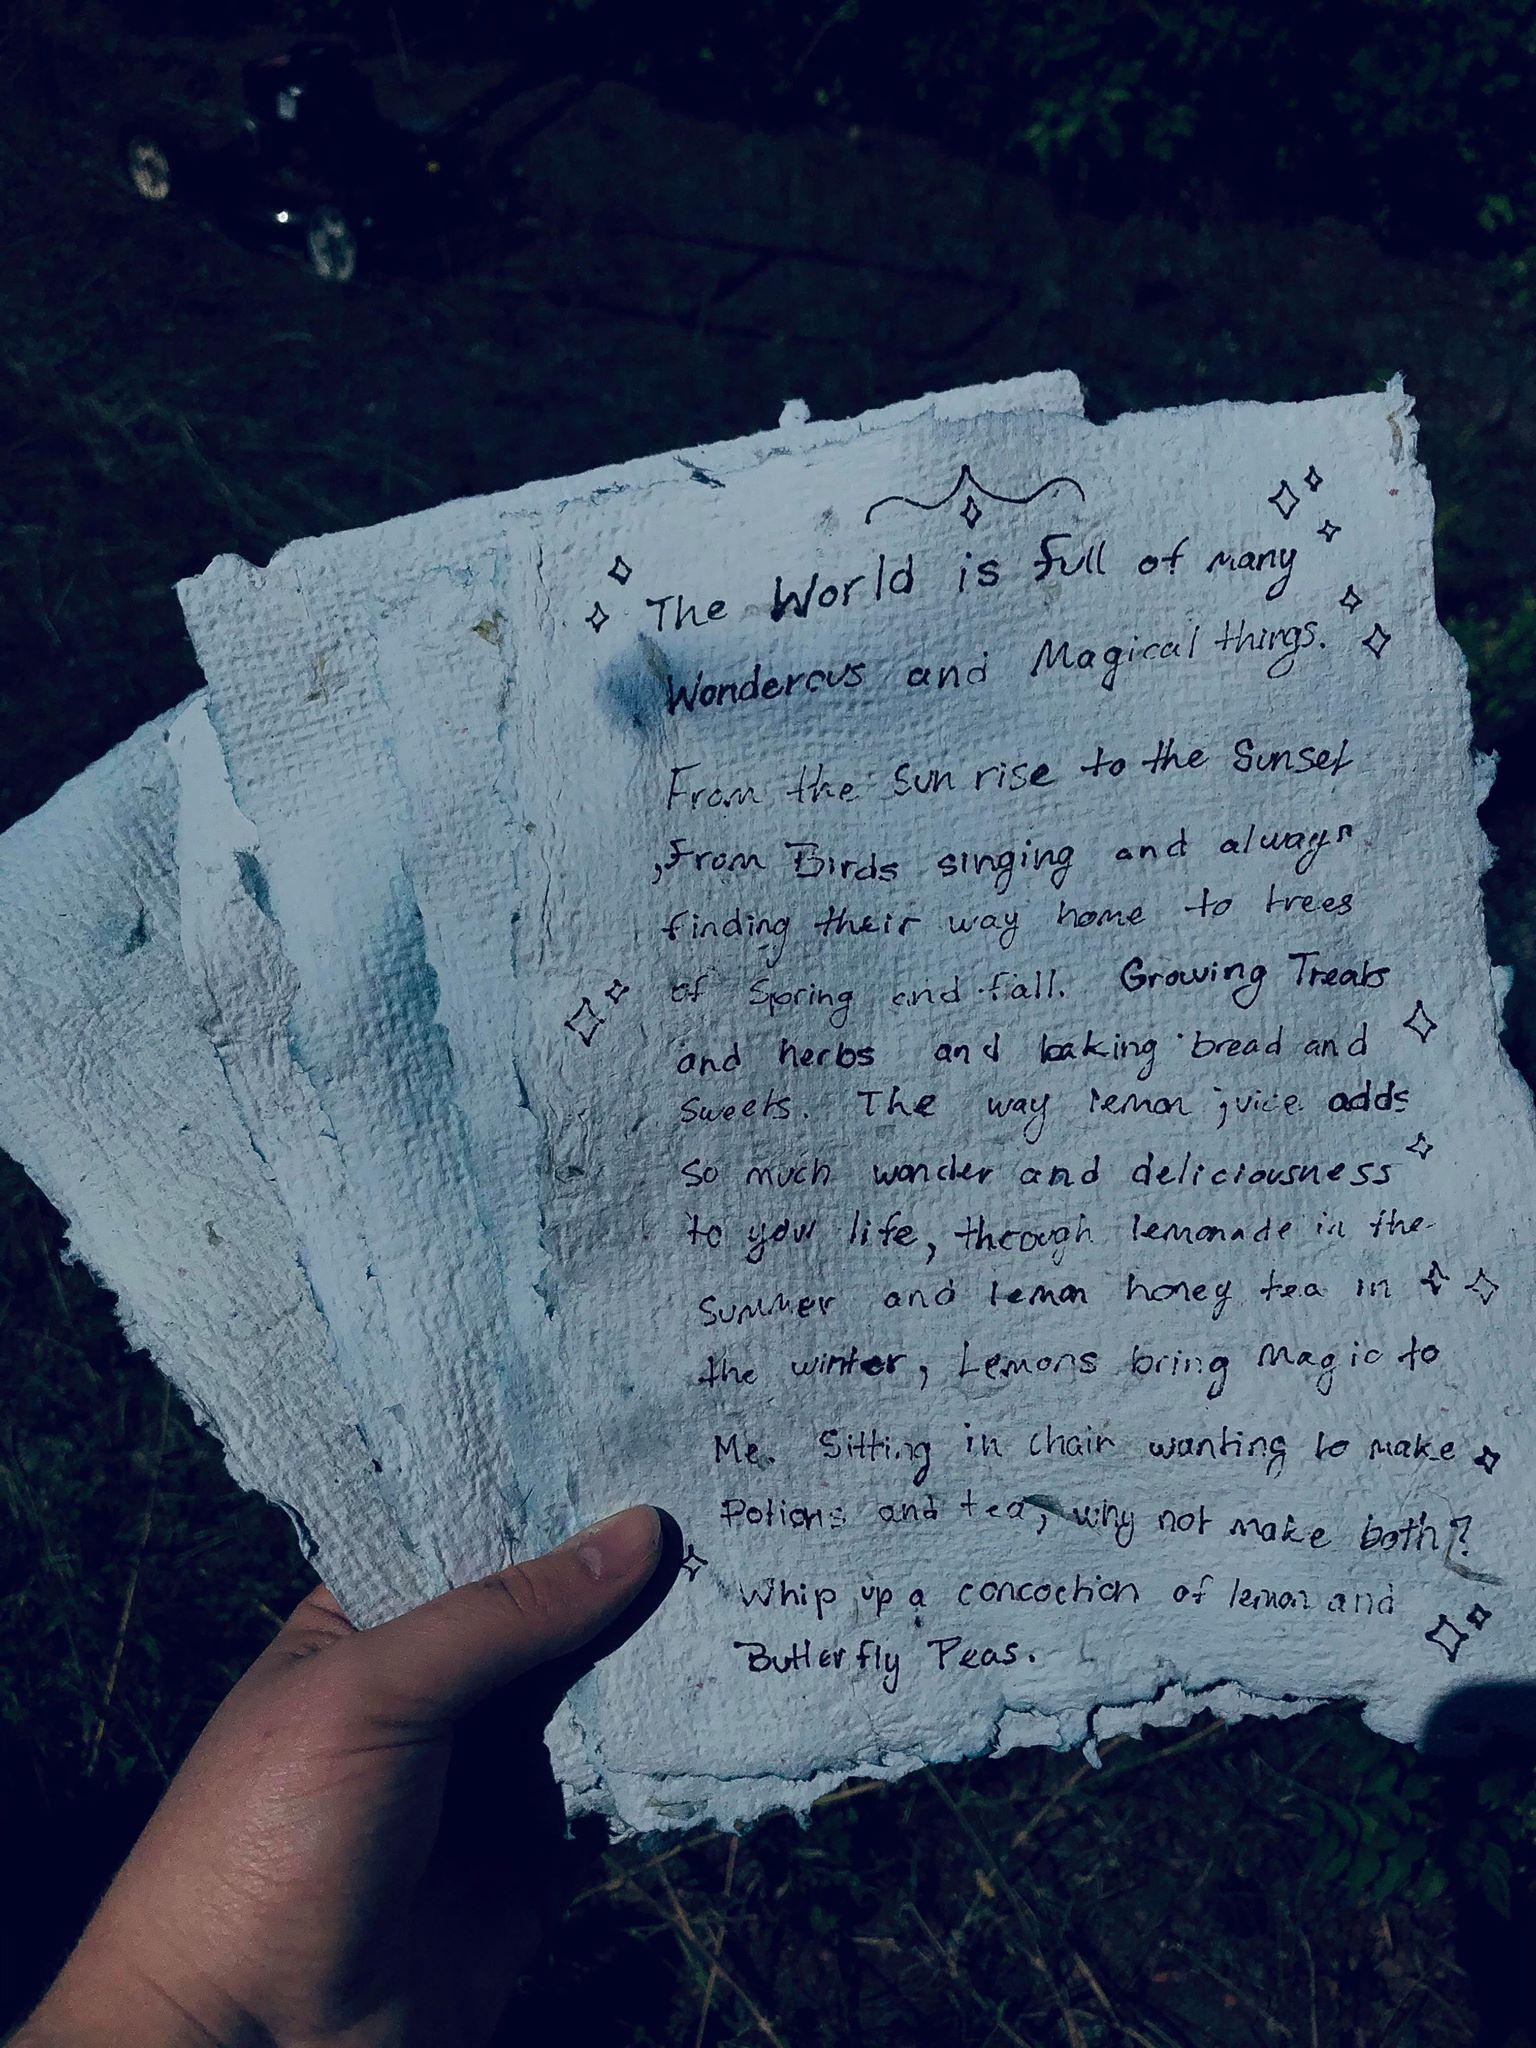 The World is full of many
Wonderous and Magical things.
From the Sun rise to the Sunset
,From Birds singing and always
finding their way home to trees
of Spring and fall. Growing Treats
and herbs and baking bread and
Sweets. The way lemon juice adds
So much wonder and deliciousness
to your life, through lemonade in the
Summer and lemon honey tea in
the winter, Lemons bring Magic to
Me. Sitting in chair wanting to make
Potions and tea, why not make both?
Whip up a concoction of lemon and
Butterfly Peas.